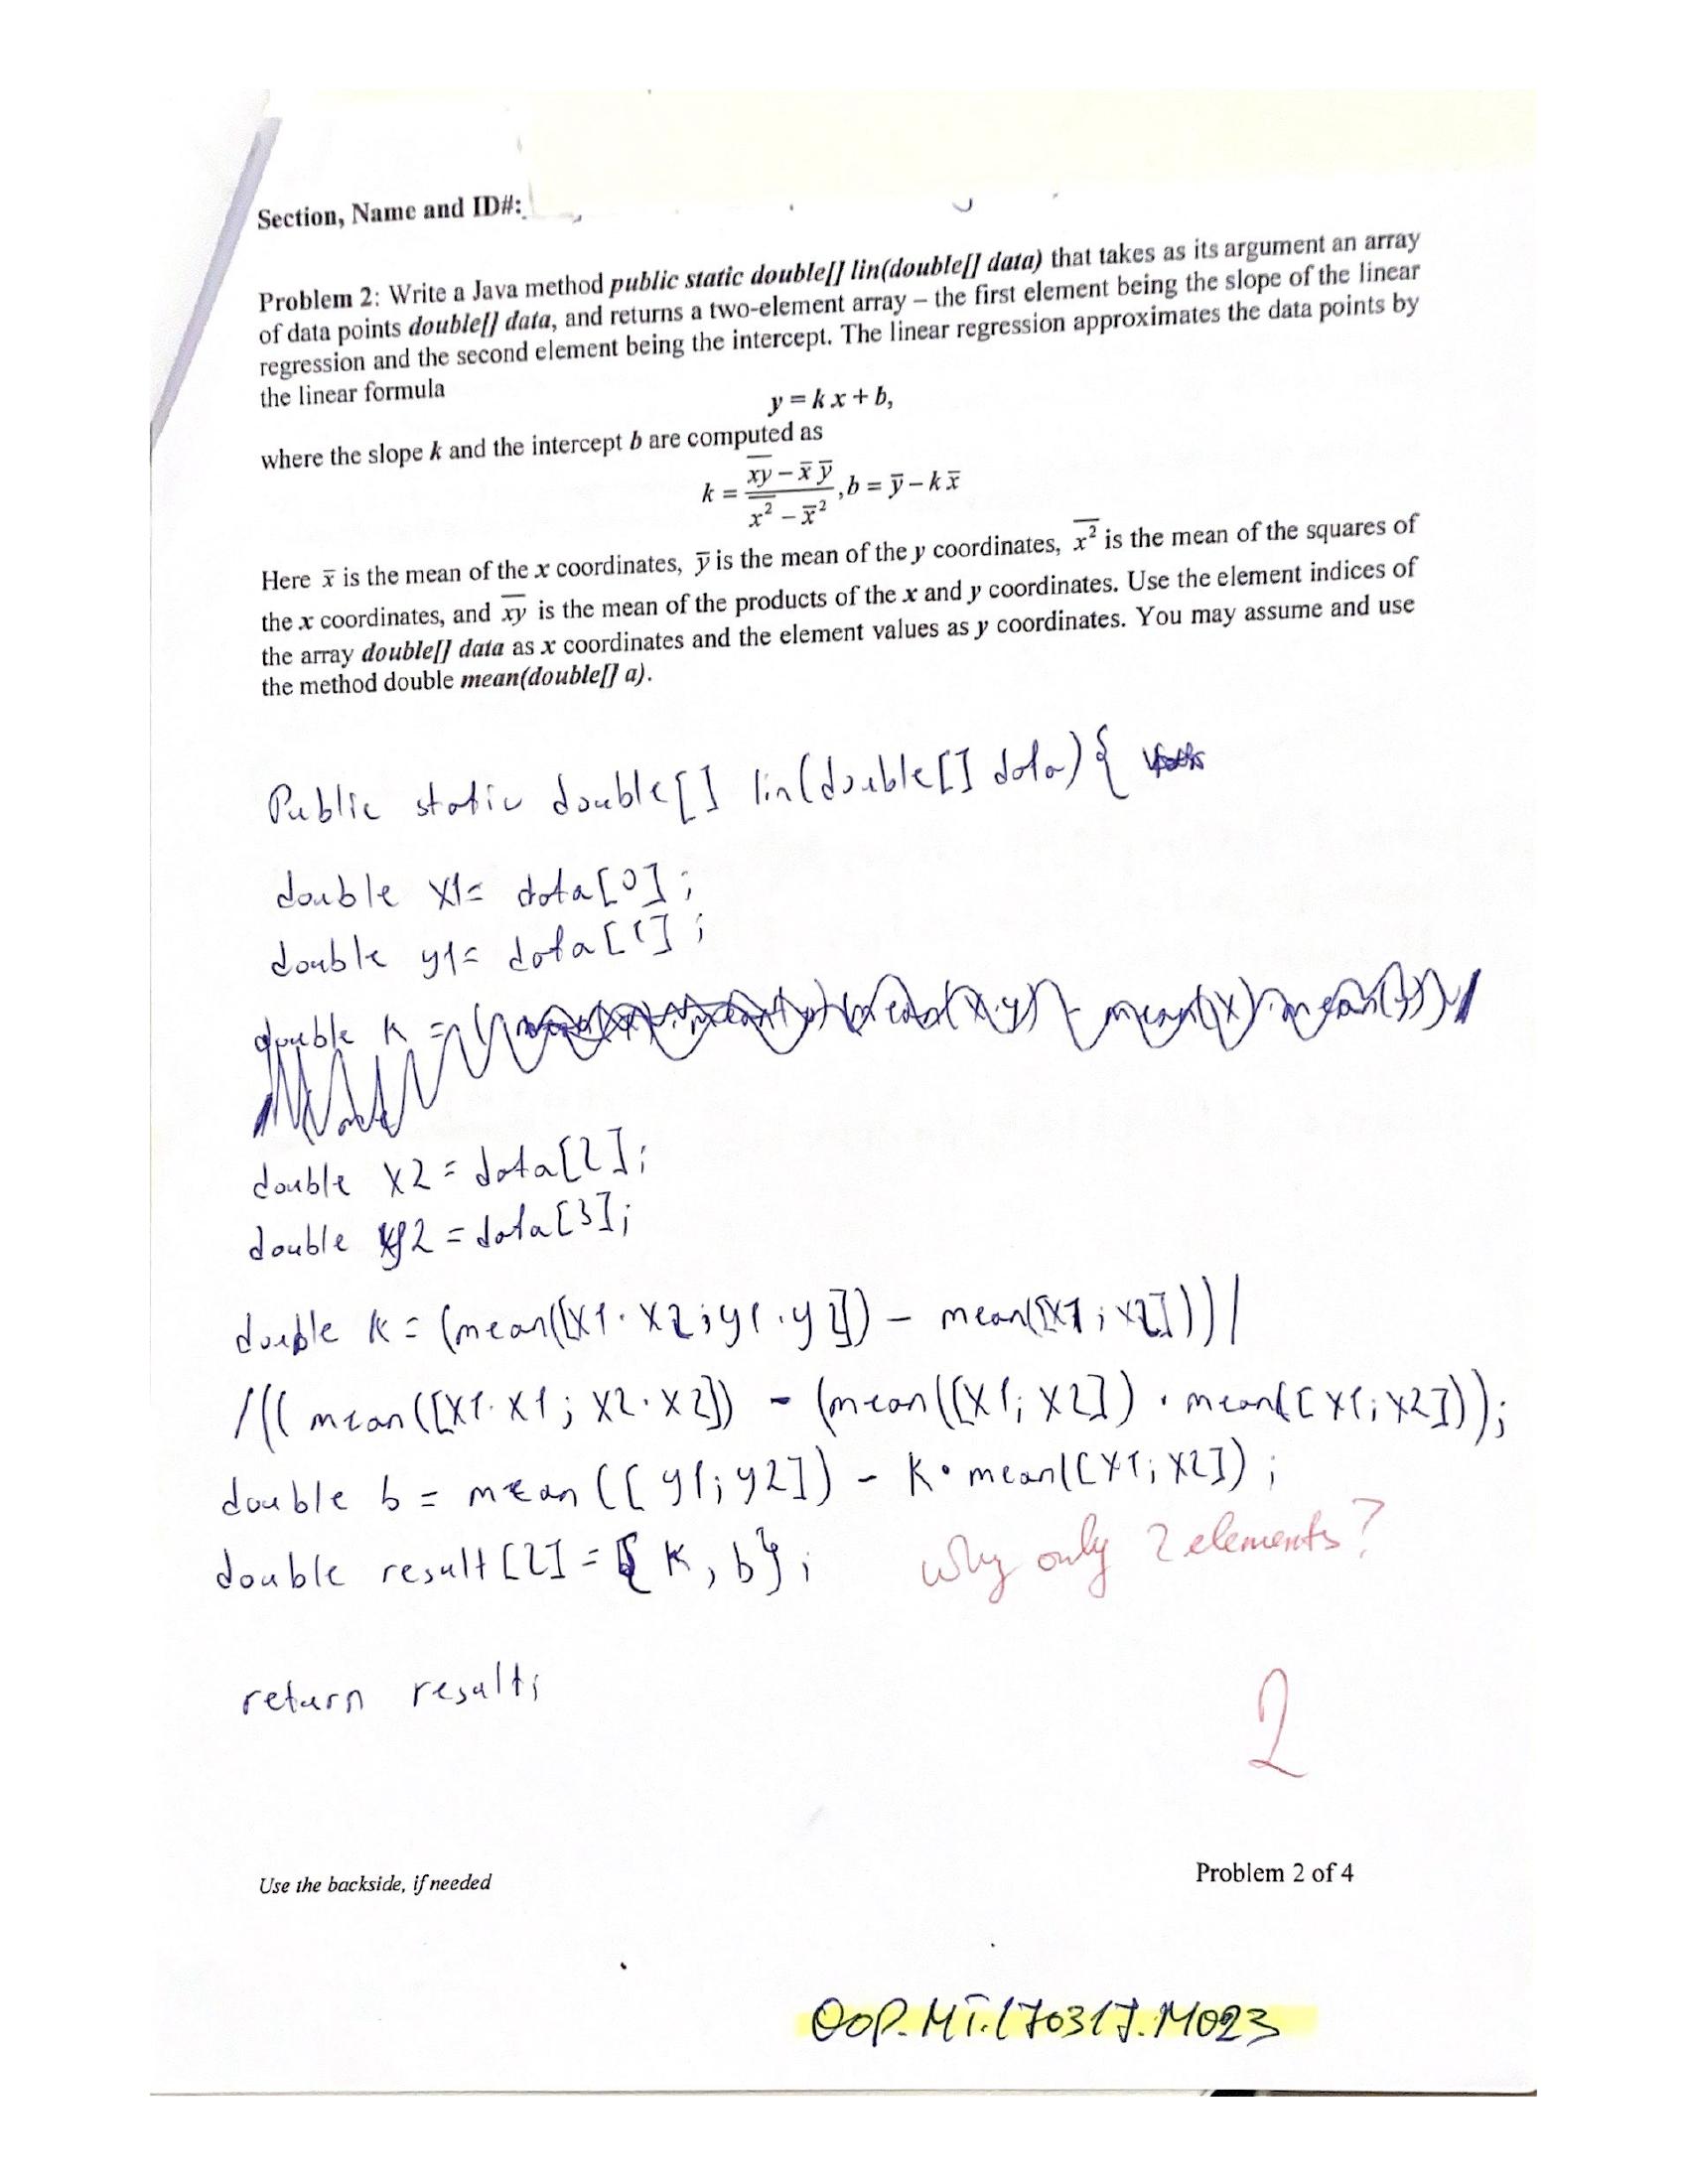 Section, Name and ID#:
Problem 2: Write a Java method public static double[] lin(double[] data) that takes as its argument an array
of data points double[] data, and returns a two-element array – the first element being the slope of the linear
regression and the second element being the intercept. The linear regression approximates the data points by
the linear formula
y = k x + b,
where the slope k and the intercept b are computed as
k = (x̅y̅ − x̄ ȳ) / (x̅²̅ − x̄²), b = ȳ − k x̄
Here x̄ is the mean of the x coordinates, ȳ is the mean of the y coordinates, x̅²̅ is the mean of the squares of
the x coordinates, and x̅y̅ is the mean of the products of the x and y coordinates. Use the element indices of
the array double[] data as x coordinates and the element values as y coordinates. You may assume and use
the method double mean(double[] a).
Public static double[] lin(double[] data){
double x1= data[0];
double y1= data[1];
double k =
double x2 = data[2];
double y2 = data[3];
double k = (mean([x1·x2;y1·y2]) – mean([x1;x2]))/
/((mean([x1·x1; x2·x2]) - (mean([x1;x2]) · mean([x1;x2]));
double b = mean([y1;y2]) – k·mean([x1;x2]);
double result[2] = {k, b};
why only 2 elements?
return result;
2
Use the backside, if needed
Problem 2 of 4
OOP.MT.170317.M023